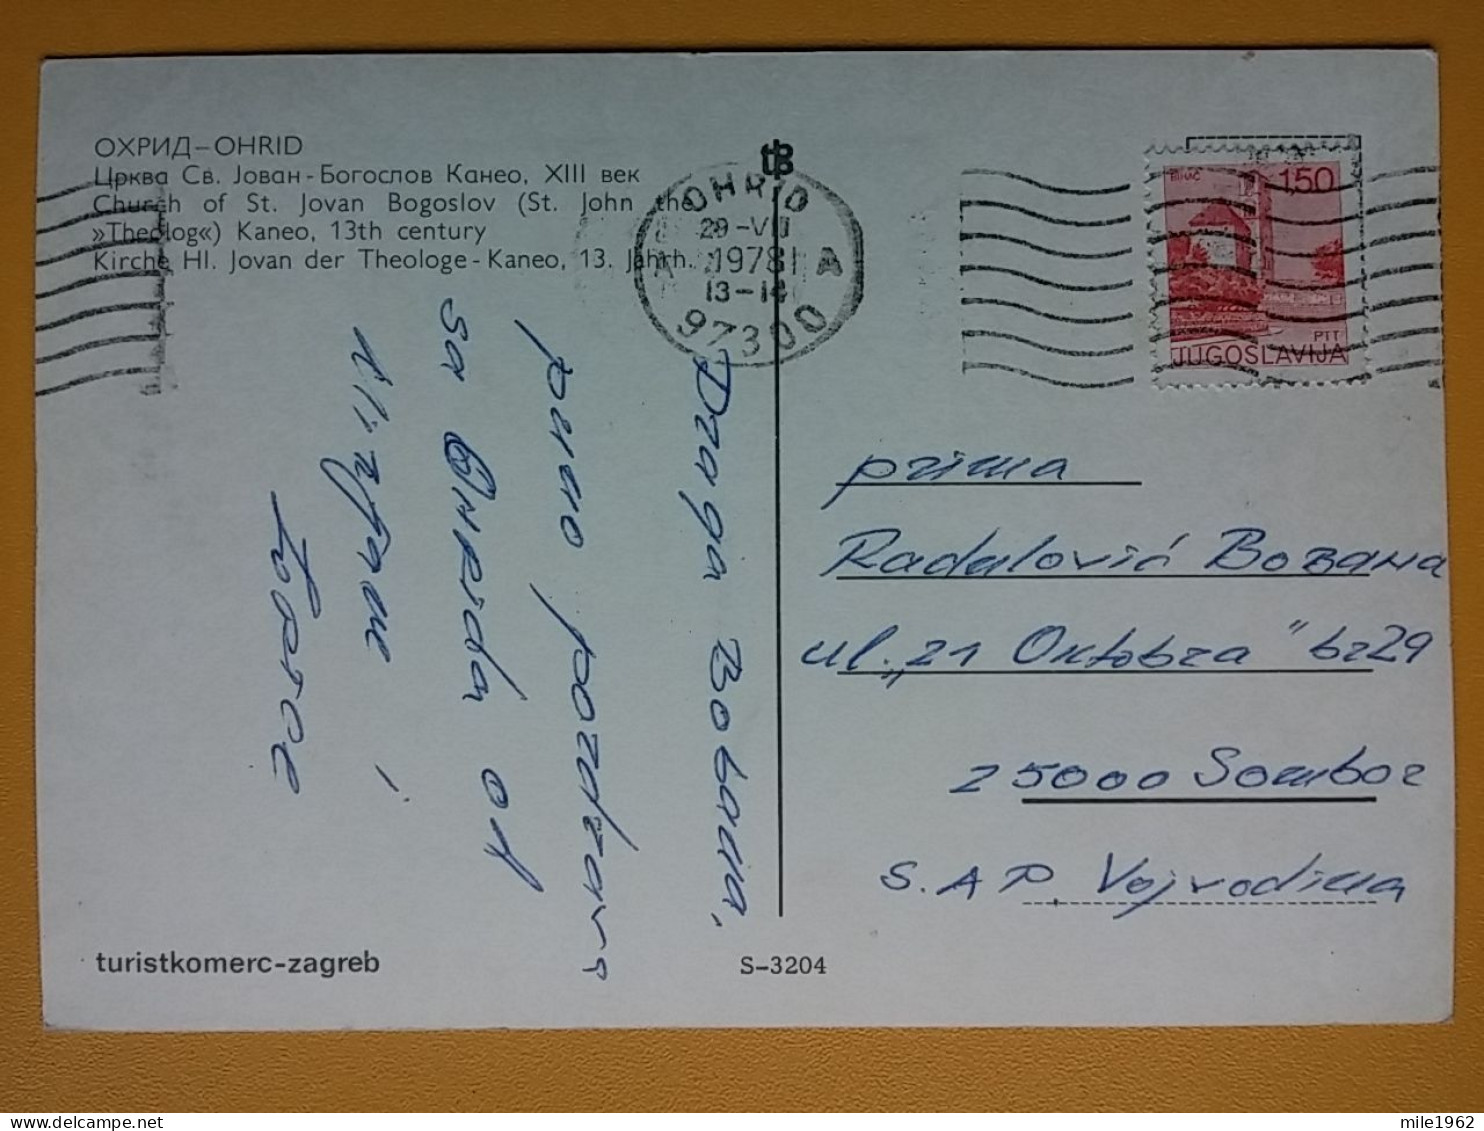 ОХРИД–OHRID
Црква Св. Јован-Богослов Канео, XIII век
Church of St. Jovan Bogoslov (St. John the
»Theolog«) Kaneo, 13th century
Kirche Hl. Jovan der Theologe-Kaneo, 13. Jahrh.
OHRID
29-VII
1978
A A
13-14
97300
1,50
PTT
JUGOSLAVIJA
Draga Bobana,
puno pozdrava
sa Ohrida od
prima
Radulović Bobana
ul. „21 Oktobra" br 29
25000 Sombor
S.A.P. Vojvodina
turistkomerc-zagreb
S-3204
mile1962